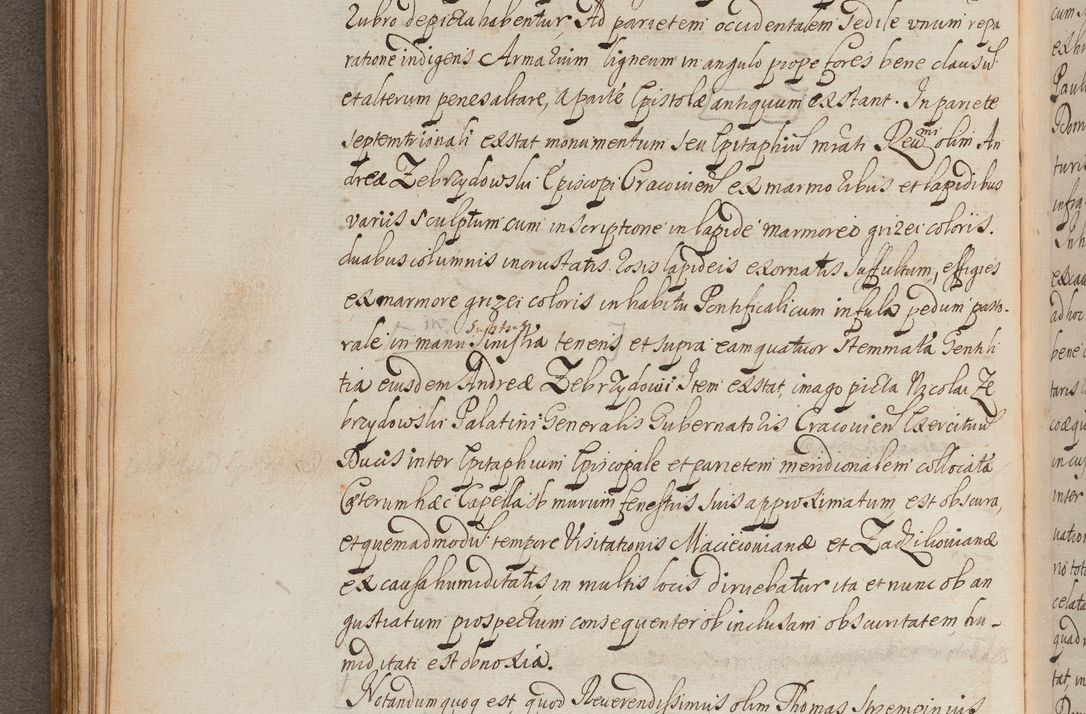 Rubro depicta habentur, Ad parietem occidentalem sedile vnum repa
ratione indigens Armarium ligneum in angulo prope fores bene clausũ
et alterum penes altare, a parte Epistolæ antiquum exstant. In pariete
septemtrionali exstat monumentum seu Epitaphiũ mrati Reumi olim An
dreæ Zebrzydowski Episcopi Cracovien̄ ex marmoribus et lapidibus
variis sculptum cum inscriptione in lapide marmoreo grizei coloris.
duabus columnis incrustatis Rosis lapideis exornatis suffultum, effigies
ex marmore grizei coloris in habitu Pontificali cum infula pedum pasto-
rale in manu sinistra tenens et supra eam quatuor stemmata Gentili
tia eiusdem Andreæ Zebrzydowii: Item exstat, imago picta Nicolai Ze
brzydowski Palatini: Generalis Gubernatoris Cracovien̄ Exercituũ
Ducis inter Epitaphium Episcopale et parietem meridionalem collocata
Cæterum hæc Capella ob murum fenestris suis approximatum est obscura,
et quemadmodũ tempore Visitationis Maciciovianæ et Zadzikovianæ
ex causa humiditatis, in multis locis diruebatur ita et nunc ob an
gustiatum prospectum consequenter ob inclusam obscuritatem, hu-
miditati est obnoxia.
Notandum quoq est, quod Reverendissimus olim Thomas